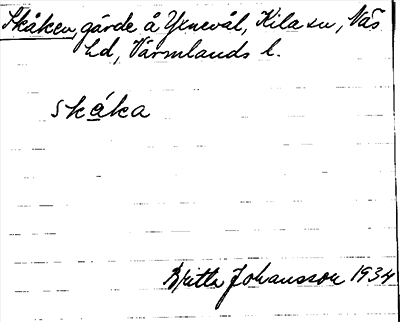 Skåken, gärde å Ynevål, Kila sn, Näs
hd, Värmlands l.
skåka
Britta Johansson 1934